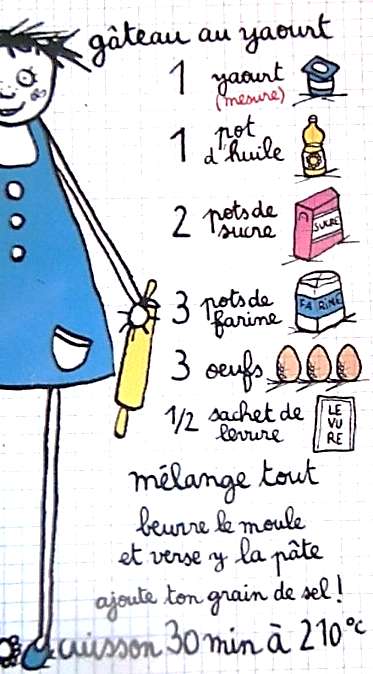 gâteau au yaourt
1 yaourt
(mesure)
1 pot
d'huile
2 pots de
sucre
SUCRE
3 pots de
farine
FARINE
3 oeufs
1/2 sachet de
levure
LE
VU
RE
mélange tout
beurre le moule
et verse y la pâte
ajoute ton grain de sel !
cuisson 30 min à 210°c